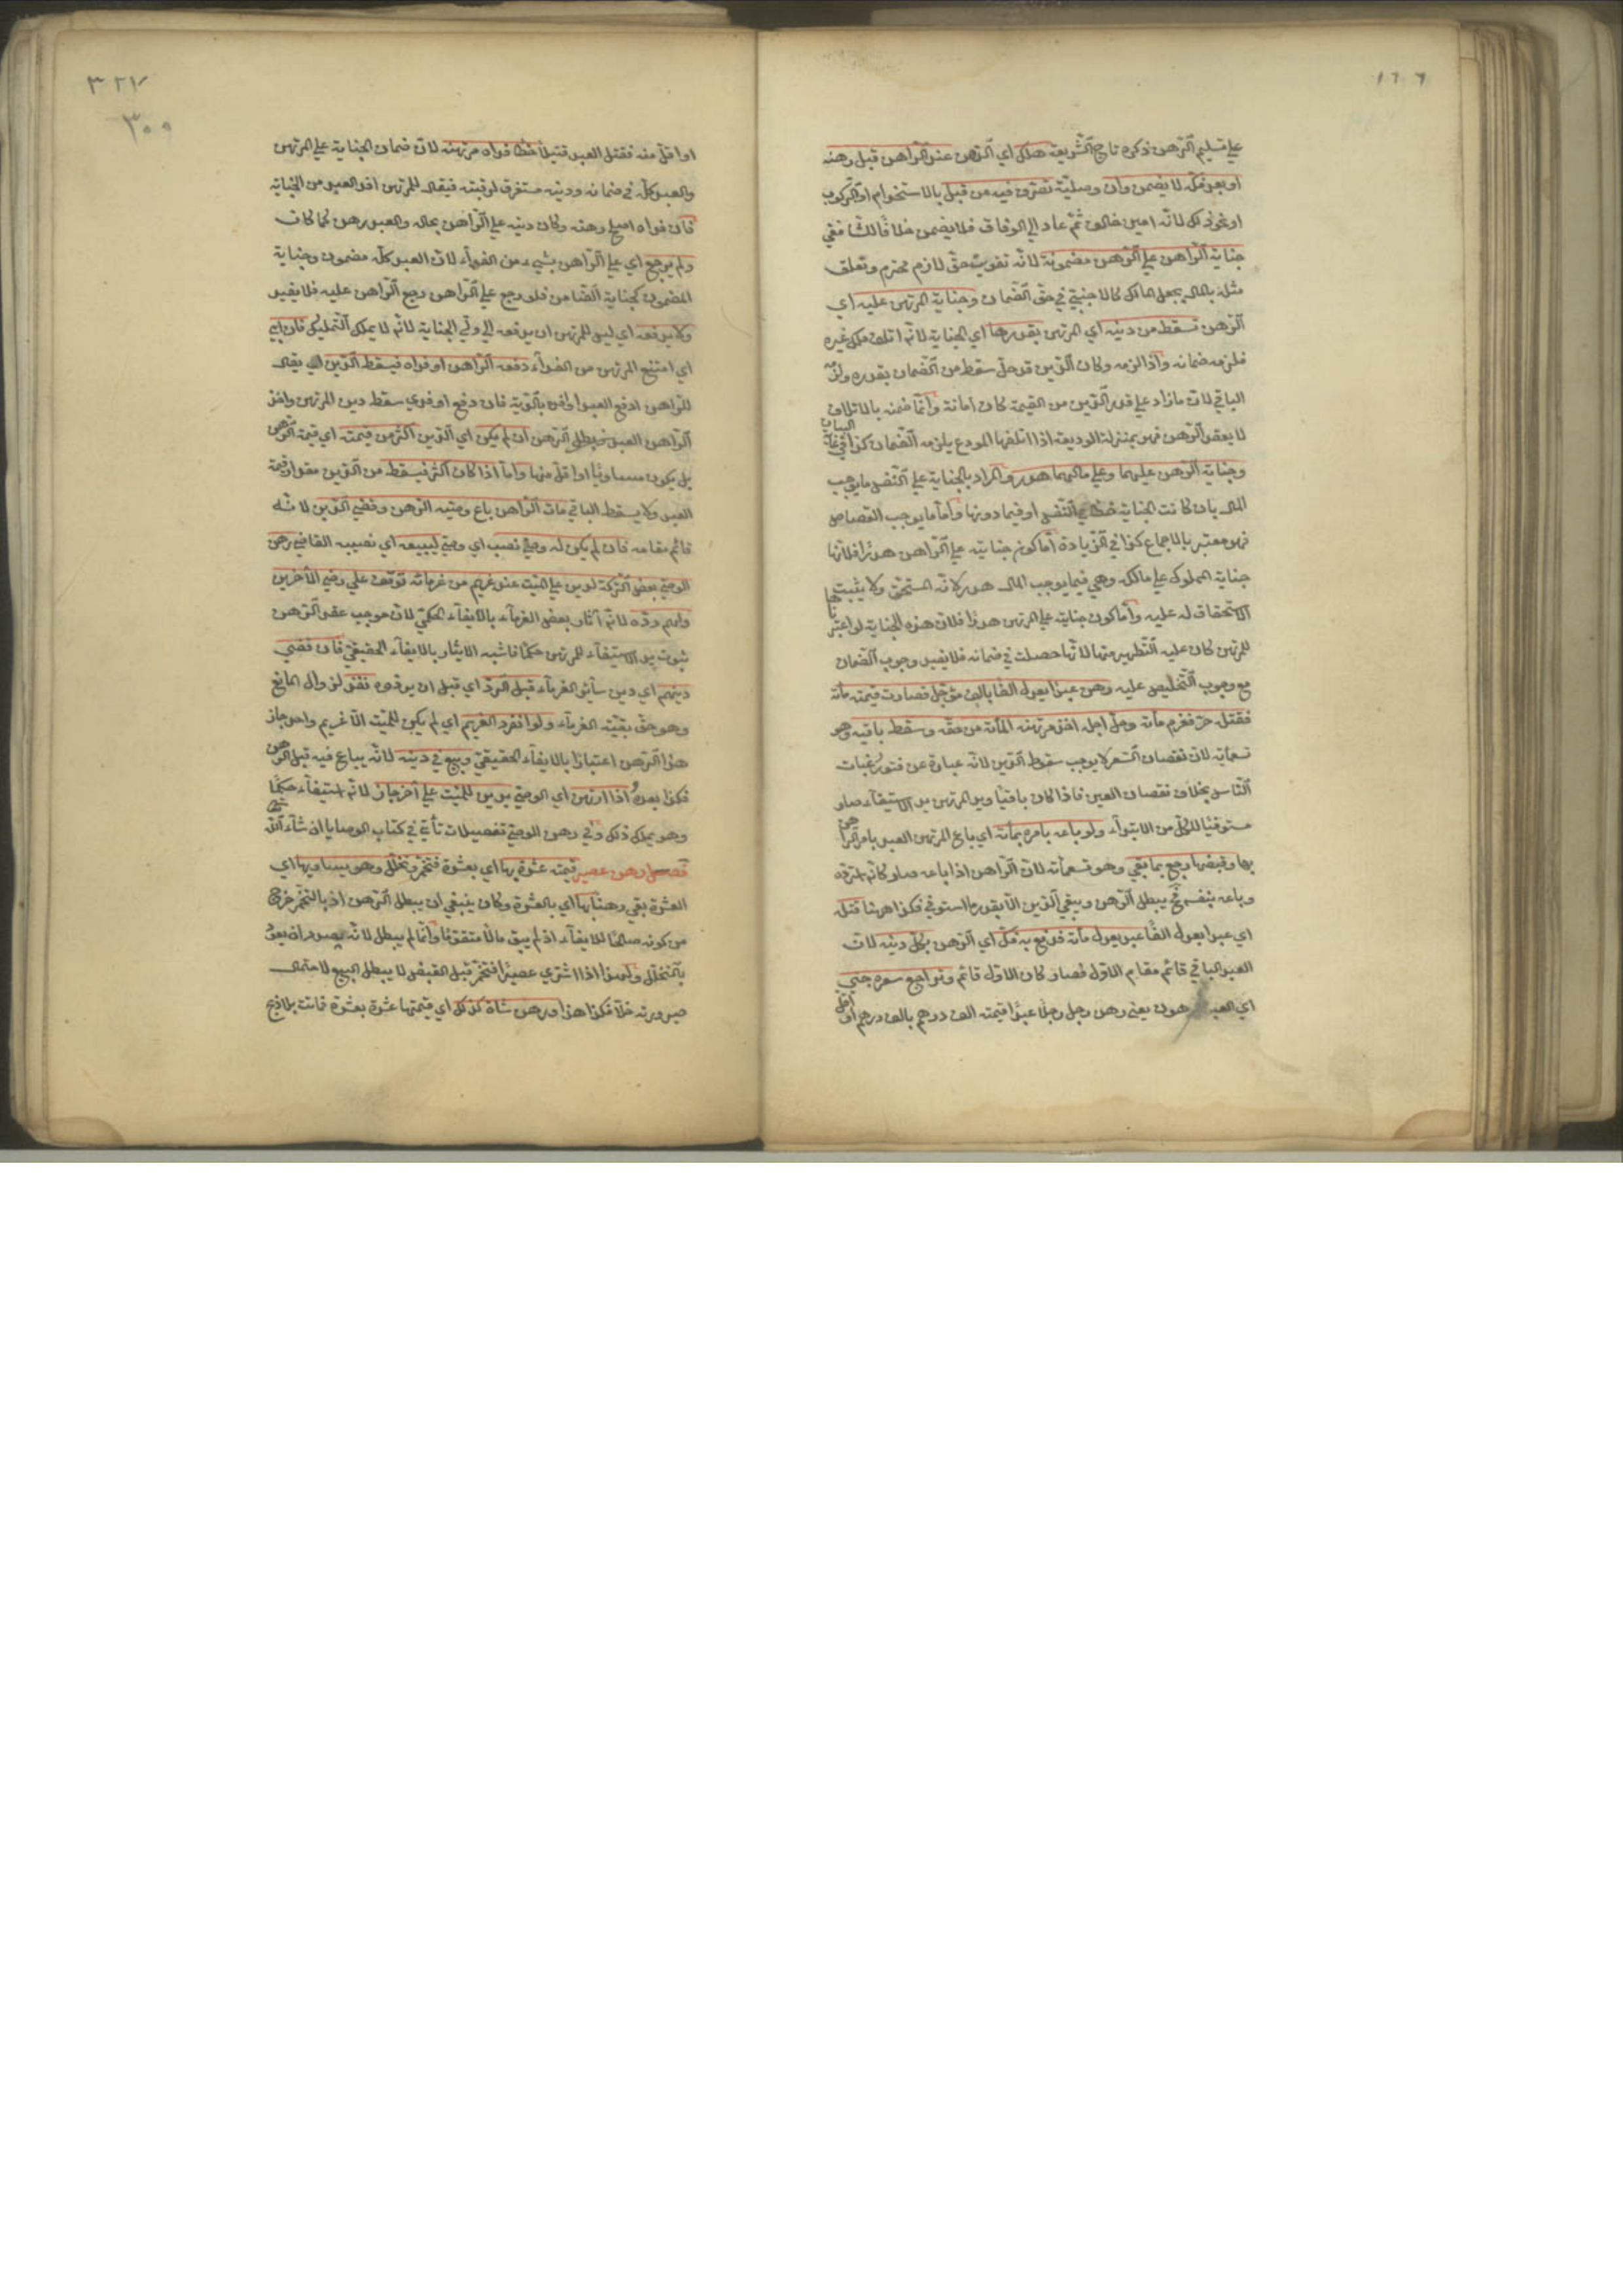 ١٦٦
علي تسليم الرهن ذكره تاج الشريعة هلك اي الرهن عند الراهن قبل رهنه
او بعد فكه لا يضمن وان وصلية تصرف فيه من قبل بالاستخدام او الركوب
او نحو ذلك لانه امين خالف ثم عاد الي الوفاق فلا يضمن خلافا للشافعي
جناية الراهن علي الرهن مضمونة لانه تفويت حق لازم محترم وتعلق
مثله بالمال يجعل المالك كالاجنبي في حق الضمان وجناية المرتهن عليه اي
الرهن تسقط من دينه اي المرتهن بقدرها اي الجناية لانه اتلف ملك غيره
فلزمه ضمانه واذا لزمه وكان الدين قد حل سقط من الضمان بقدره ولزمه
الباقي لان ما زاد علي قدر الدين من القيمة كان امانة وانما ضمنه بالاتلاف
لا بعقد الرهن فهو بمنزلة الوديعة اذا اتلفها المودع يلزمه الضمان كذا في غاية البيان
وجناية الرهن عليهما وعلي مالهما هدر والمراد بالجناية علي النفس ما يوجب
المال بان كانت الجناية خطأ في النفس او فيما دونها واما ما يوجب القصاص
فهو معتبر بالاجماع كذا في الزيادة اما كون جنايته علي الراهن هدرا فلانها
جناية المملوك علي مالكه وهي فيما يوجب المال هدر لانه المستحق ولا يثبت
الاستحقاق له عليه واما كون جنايته علي المرتهن هدرا فلان هذه الجناية لو اعتبرناها
للمرتهن كان عليه التطهير منها لانها حصلت في ضمانه فلا يفيد وجوب الضمان
مع وجوب التخليص عليه رهن عبدا يعدل الفا بالف مؤجل فصارت قيمته مأة
فقتله حر فغرم مأة وحل اجله اخذ مرتهنه المأة من حقه وسقط باقيه وهو
تسعمأية لان نقصان السعر لا يوجب سقوط الدين لانه عبارة عن فتور رغبات
الناس بخلاف نقصان العين فاذا كان باقيا ويد المرتهن يد الاستيفاء صار
مستوفيا للكل من الابتداء ولو باعه بامره بمأة اي باع المرتهن العبد بامر الراهن
بها وقبضها رجع بما بقي وهو تسعمأة لان الراهن اذا باعه صار كانه استرده
وباعه بنفسه فح يبطل الرهن ويبقي الدين الا بقدر ما استوفي فكذا هنا قتله
اي عبدا يعدل الفا عبد يعدل مأة فدفع به فكه اي الرهن بكل دينه لان
العبد الباقي قائم مقام الاول فصار كان الاول قائم وتراجع سعره جني
اي العبد هون يعني رهن رجل رجلا عبدا قيمته الف درهم بالف درهم او اقل
٣٢٧
٣٠٠
او اقل منه فقتل العبد قتيلا خطأ فداه مرتهنه لان ضمان الجناية علي المرتهن
والعبد كله في ضمانه ودينه مستغرق لرقبته فيقال للمرتهن افد العبد من الجناية
فان فداه اصلح رهنه وكان دينه علي الراهن بحاله والعبد رهن كما كان
ولم يرجع اي علي الراهن بشيء من الفداء لان العبد كله مضمون وجناية
المضمون كجناية الضامن فلو رجع علي الراهن رجع الراهن عليه فلا يفيد
ولا يدفعه اي ليس للمرتهن ان يدفعه الي ولي الجناية لانه لا يملك التمليك فان ابي
اي امتنع المرتهن من الفداء دفعه الراهن او فداه فيسقط الدين اي يقال
للراهن ادفع العبد او افد بالدية فان دفع او فدي سقط دين المرتهن واخذ
الراهن العبد فيبطل الرهن ان لم يكن اي الدين اكثر من قيمته اي قيمة الرهن
بل يكون مساويا او اقل منها واما اذا كان اكثر فيسقط من الدين مقدار قيمة
العبد ولا يسقط الباقي مات الراهن باع وصيه الرهن وقضي الدين لانه
قائم مقامه فان لم يكن له وصي نصب اي وصي لبيعه اي نصيبه القاضي رهن
الوصي بعض التركة لدين علي الميت عند غريم من غرمائه توقف علي رضي الآخرين
ولهم رده لانه آثار بعض الغرماء بالايفاء الحكمي لان موجب عقد الرهن
ثبوت يد الاستيفاء للمرتهن حكما فاشبه الايثار بالايفاء الحقيقي فان قضي
دينهم اي دين سائر الغرماء قبل الرد اي قبل ان يردوه نفذ لزوال المانع
وهو حق بقية الغرماء ولو انفرد الغريم اي لم يكن للميت الا غريم واحد جاز
هذا الرهن اعتبارا بالايفاء الحقيقي وبيع في دينه لانه يباع فيه قبل الرهن
فكذا بعده اذا ارتهن اي الوصي بدين للميت علي آخر جاز لانه استيفاء حكما
وهو يملك ذلك وفي رهن الوصي تفصيلات تأتي في كتاب الوصايا ان شاء الله
فصل رهن عصير قيمته عشرة بها اي بعشرة فتخمر وتخلل وهو يساويها اي
العشرة بقي رهنا بها اي بالعشرة وكان ينبغي ان يبطل الرهن اذ بالتخمر خرج
من كونه صالحا للايفاء اذ لم يبق مالا متقوما وانما لم يبطل لانه بصدد ان يعود
بالتخلل ولهذا اذا اشتري عصيرا فتخمر قبل القبض لا يبطل البيع لاحتمال
صيرورته خلا فكذا هذا ورهن شاة كذلك اي قيمتها عشرة بعشرة فماتت بلا ذبح